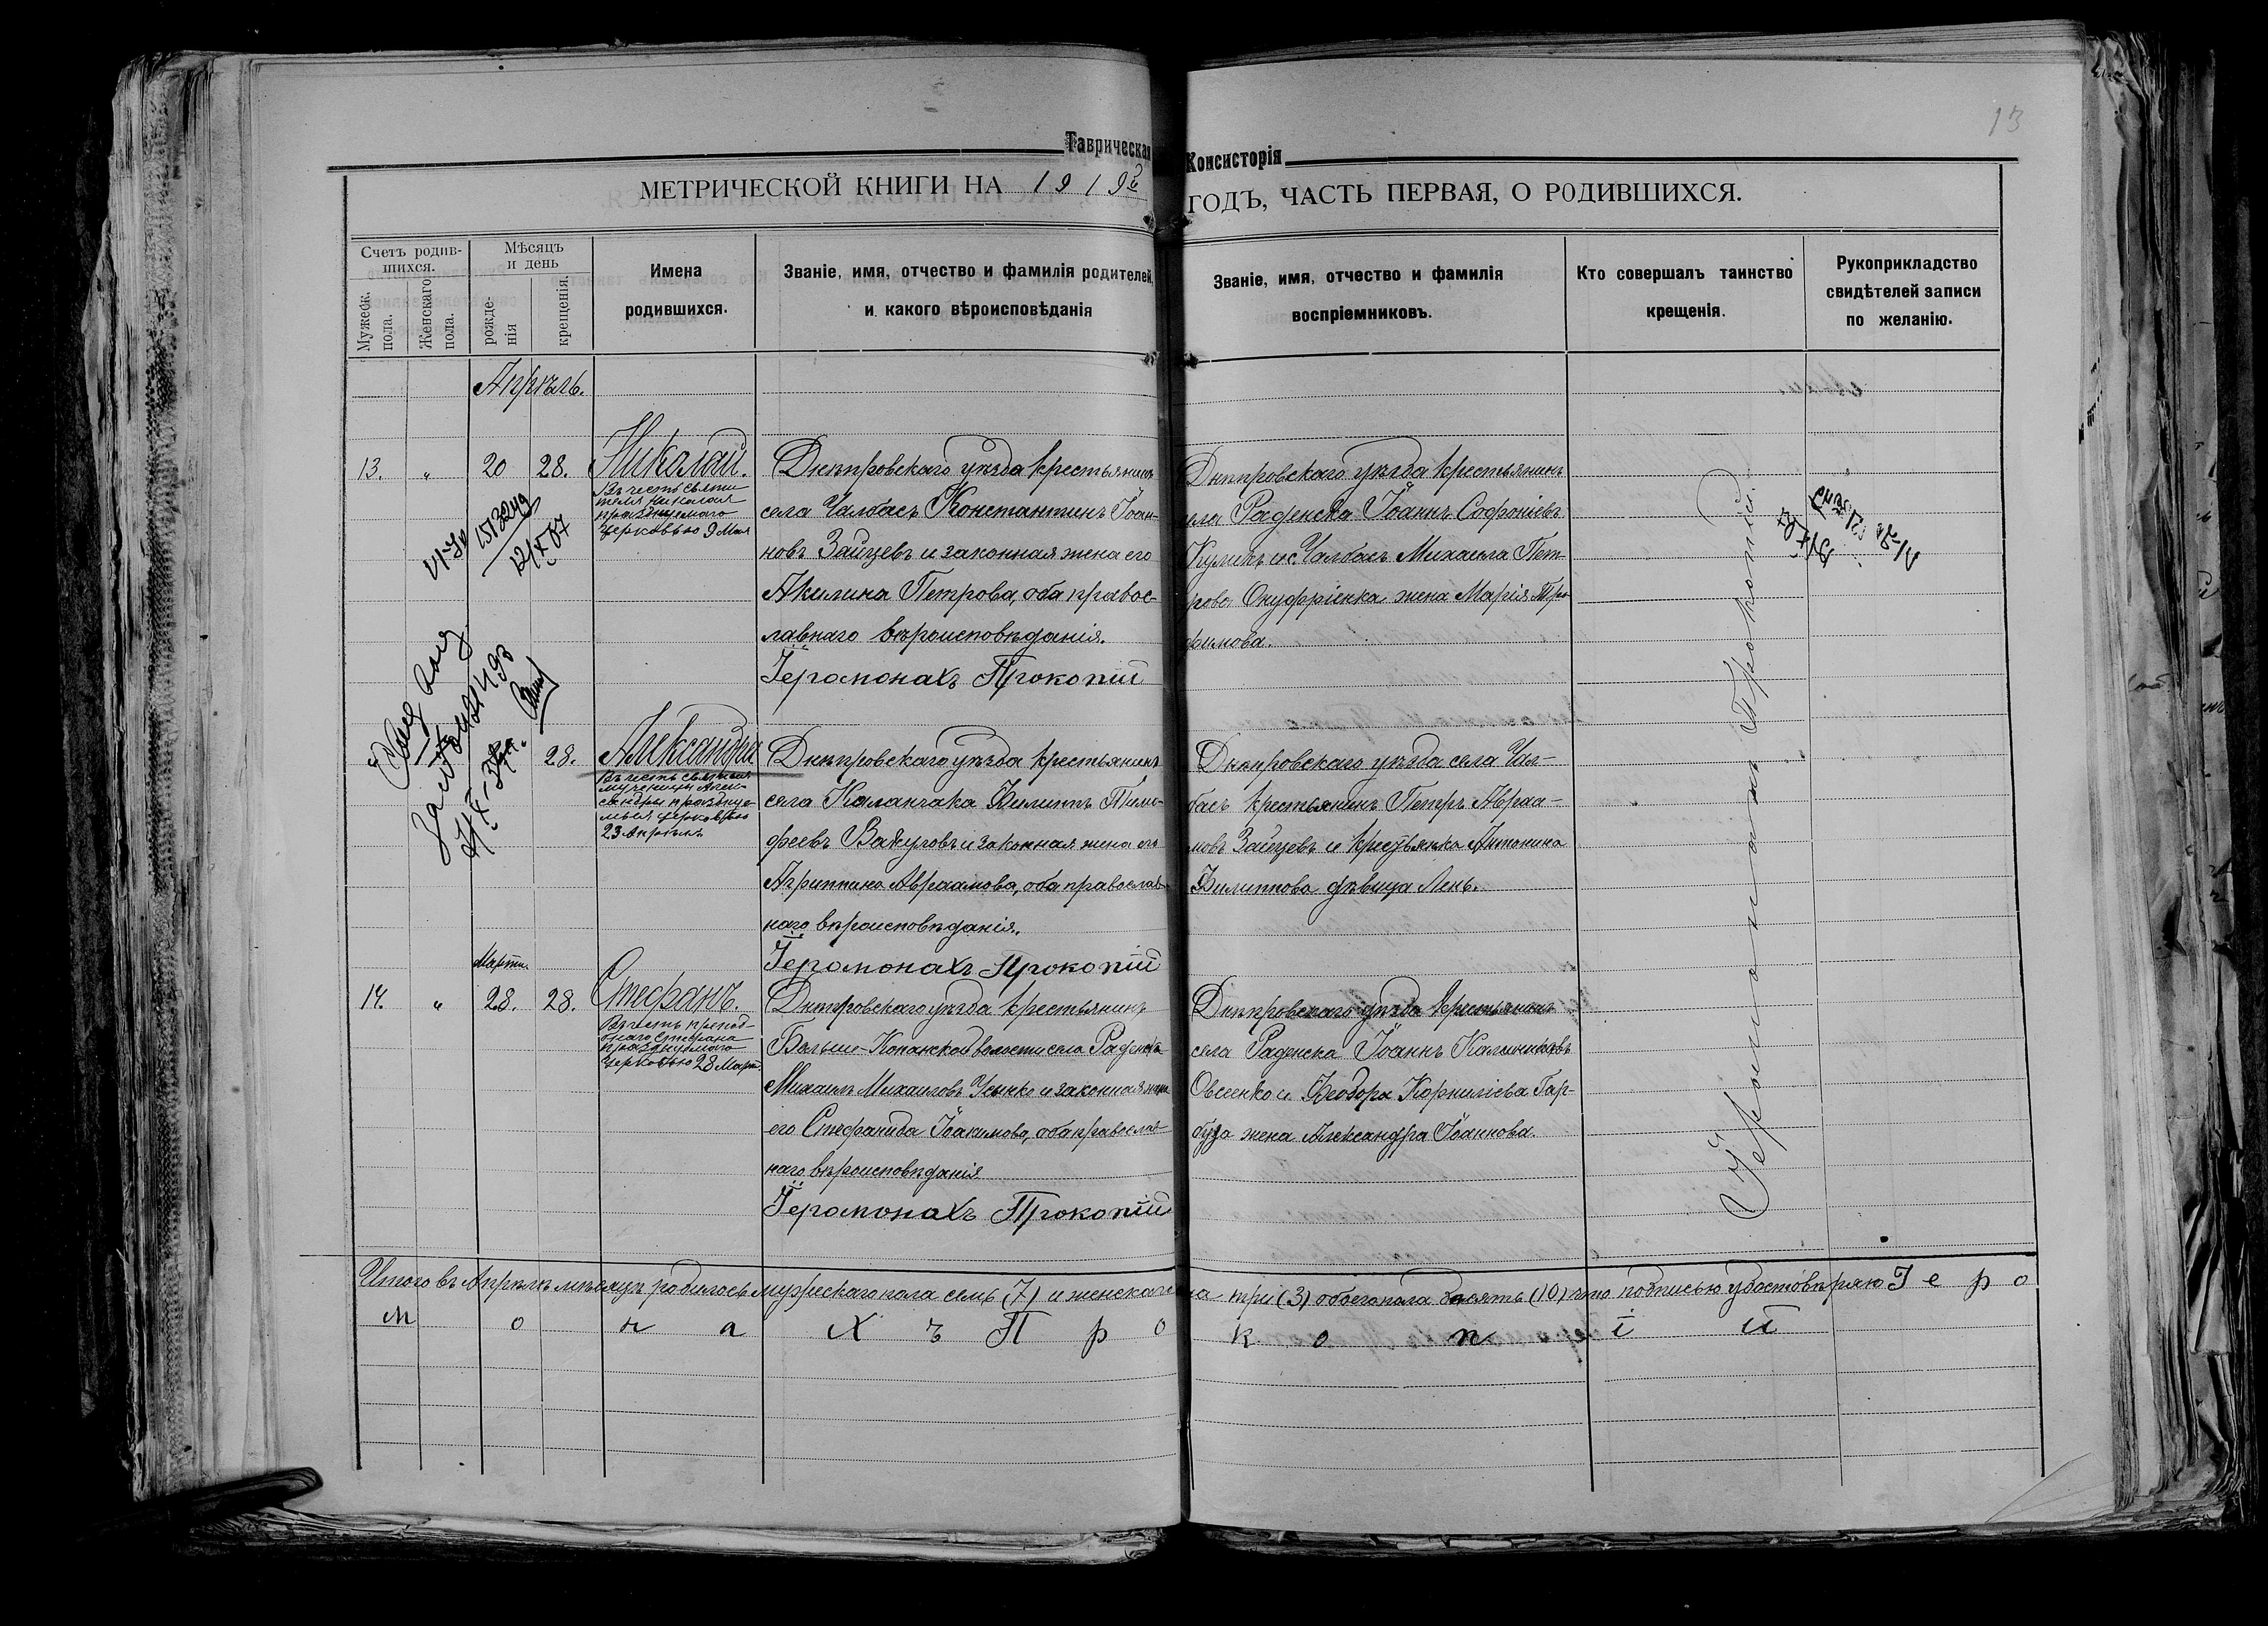 13
Таврическая Консисторія
МЕТРИЧЕСКОЙ КНИГИ НА 1919й ГОДЪ, ЧАСТЬ ПЕРВАЯ, О РОДИВШИХСЯ.
Счетъ родив-
шихся.
Мужеск.
пола.
Женскаго
пола.
Мѣсяцъ
и день
рожде-
нія
крещенія.
Имена
родившихся.
Званіе, имя, отчество и фамилія родителей,
и какого вѣроисповѣданія
Званіе, имя, отчество и фамилія
воспріемниковъ.
Кто совершалъ таинство
крещенія.
Рукоприкладство
свидѣтелей записи
по желанію.
Апрѣль.
13. " 20 28. Николай.
Въ честь святи-
теля Николая
празднуемаго
церковью 9 Мая
Днѣпровскаго уѣзда крестьянинъ
села Чалбасъ Константинъ Іоан-
новъ Зайцевъ и законная жена его
Акилина Петрова, оба правос-
лавнаго вѣроисповѣданія.
Іеромонахъ Прокопій
Днѣпровскаго уѣзда крестьянинъ
села Раденска Іоаннъ Софроніевъ
Куликъ и с. Чалбасъ Михаила Пет-
рова Онуфріенка жена Марія Тро-
фимова.
VI-ЯИ 1513249
12/X 07
28. Александра
Въ честь святыя
мученицы Алек-
сандры празднуе-
мыя церковью
23 Апрѣля
Днѣпровскаго уѣзда крестьянинъ
села Каланчака Филиппъ Тимо-
феевъ Вакуловъ и законная жена его
Агриппина Авраамова, оба православ-
наго вѣроисповѣданія.
Іеромонахъ Прокопій
Днѣпровскаго уѣзда села Чал-
басъ крестьянинъ Петръ Авраа-
мовъ Зайцевъ и крестьянка Антонина
Филиппова дѣвица Лень.
Марта.
14. " 28. 28. Стефанъ.
Въ честь препод-
бнаго Стефана
празднуемаго
церковью 28 Март.
Днѣпровскаго уѣзда крестьянинъ
Больше-Копанской волости села Раденска
Михаилъ Михаиловъ Усенко и законная жена
его Стефанида Іоакимова, оба православ-
наго вѣроисповѣданія
Іеромонахъ Прокопій
Днѣпровскаго уѣзда крестьянинъ
села Раденска Іоаннъ Калинниковъ
Овсеенко и Феодора Корниліева Гар-
буза жена Александра Іоаннова.
Іеромонахъ Прокопій.
Итого въ Апрѣлѣ мѣсяцѣ родилось мужескаго пола семь (7) и женскаго пола три (3) обоего пола десять (10) что подписью удостовѣряю Іеро
монахъ Прокопій